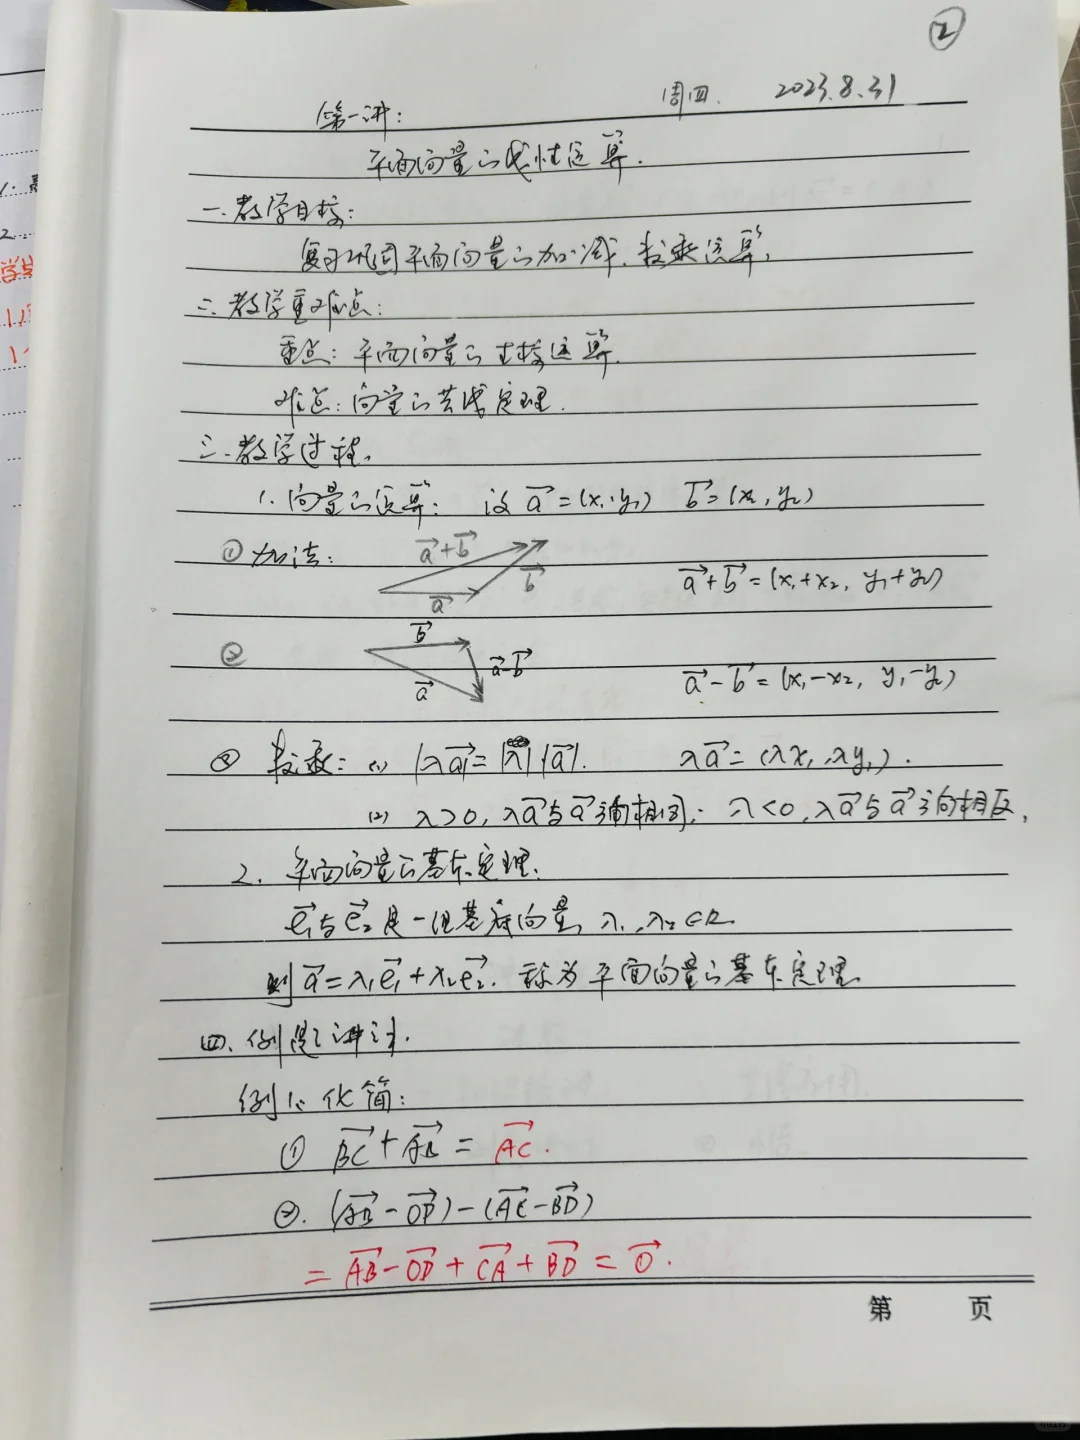 ②
周四. 2023.8.31
第一讲:
平面向量的线性运算.
一.教学目标:
复习巩固平面向量的加、减、数乘运算.
二.教学重难点:
重点: 平面向量的线性运算.
难点: 向量的共线定理.
三.教学过程.
1. 向量的运算: 设 a⃗=(x₁,y₁) b⃗=(x₂,y₂)
① 加法: a⃗+b⃗ a⃗ b⃗ a⃗+b⃗=(x₁+x₂, y₁+y₂)
② b⃗ a⃗ a⃗-b⃗ a⃗-b⃗=(x₁-x₂, y₁-y₂)
③ 数乘: (1) |λa⃗|=|λ|·|a⃗|. λa⃗=(λx₁,λy₁).
(2) λ>0, λa⃗与a⃗方向相同; λ<0, λa⃗与a⃗方向相反.
2. 平面向量的基本定理.
e⃗₁与e⃗₂是一组基底向量, λ₁,λ₂∈R
则a⃗=λ₁e⃗₁+λ₂e⃗₂. 称为平面向量的基本定理.
四.例题讲讨.
例1: 化简:
① BC⃗+AB⃗=AC⃗.
②.(AB⃗-OD⃗)-(AC⃗-BD⃗)
=AB⃗-OD⃗+CA⃗+BD⃗=0⃗.
第 页